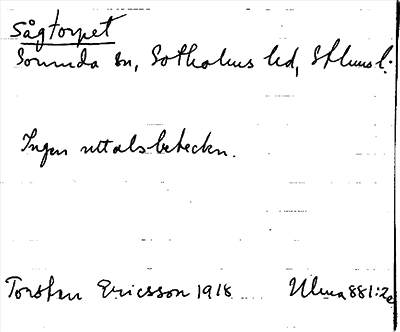 Sågtorpet
Sorunda sn, Sotholms hd, Sthlms l.
Ingen uttalsbeteckn.
Torsten Ericsson 1918 Ulma 881:2e